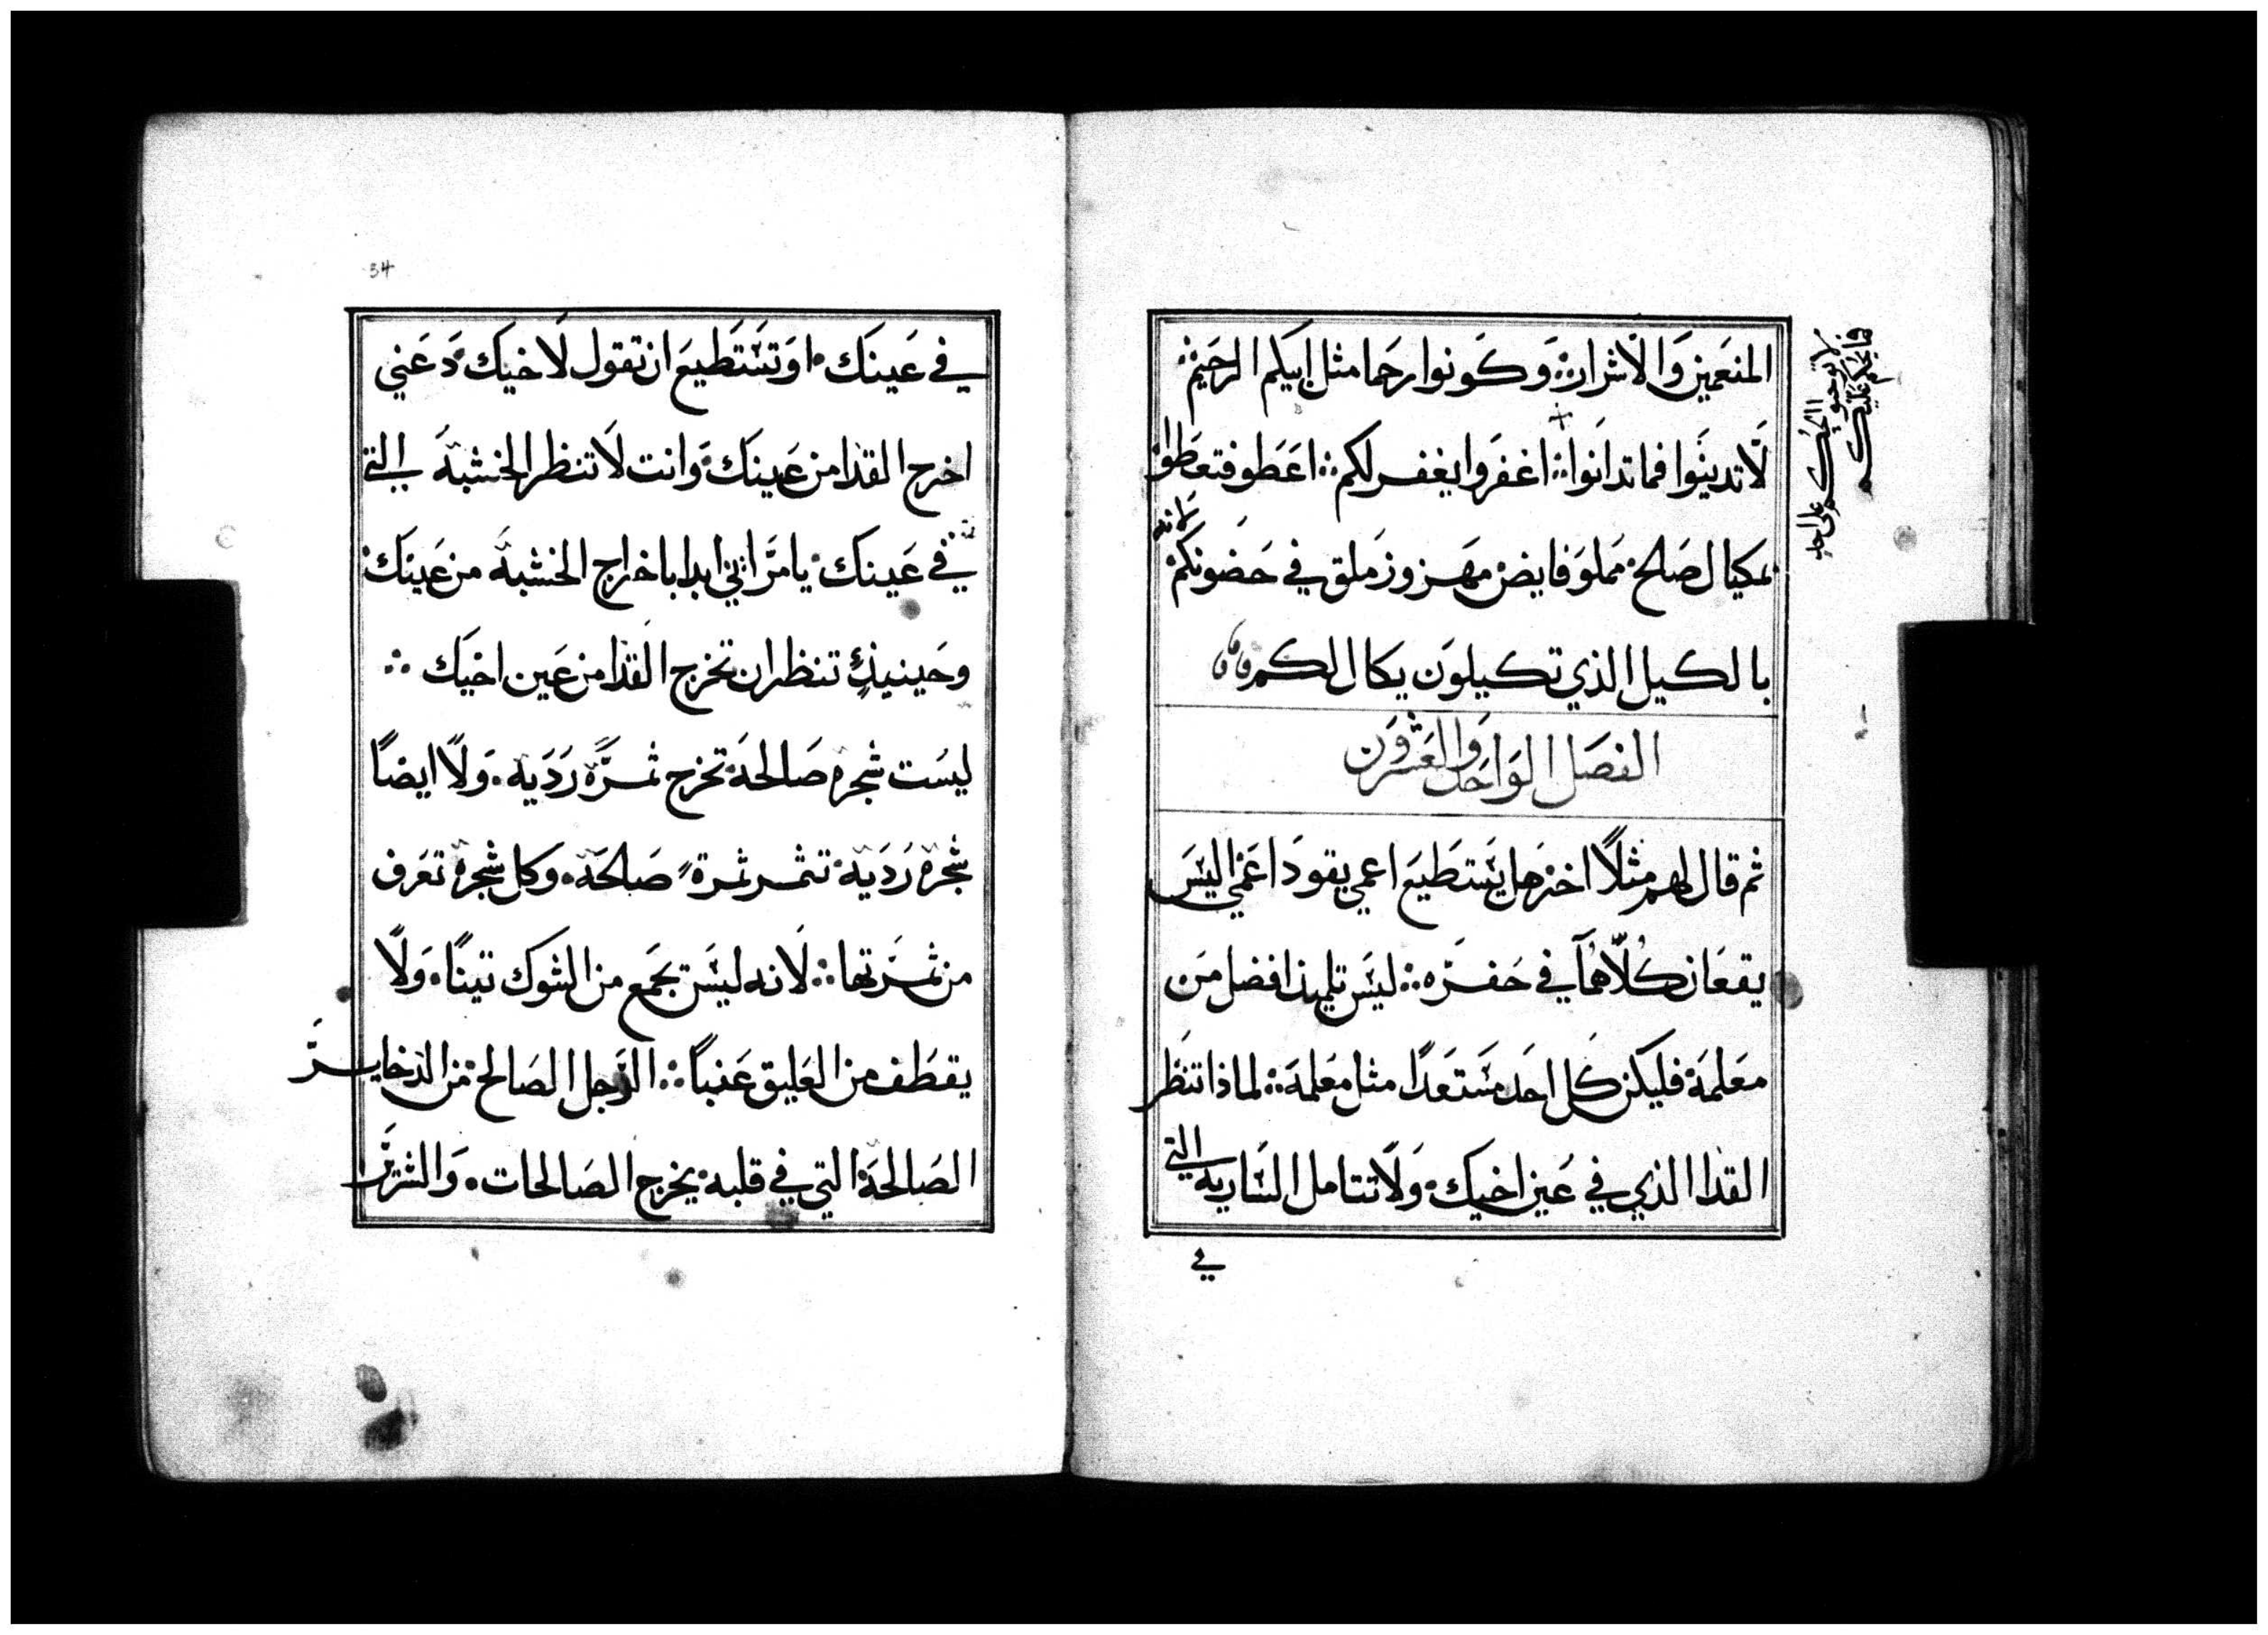 المنعمين والاشرار: وكونوا رحما مثل ابيكم الرحيم:
لا تدينوا فما تدانوا: اغفروا يغفر لكم: اعطو فتعطوا
لانه
بمكيال صالح: مملو فايض مهزوز ملق في حضونكم:
بالكيل الذي تكيلون يكال لكم
الفصل الواحد والعشرون
ثم قال لهم مثلاً اخر هل يستطيع اعمي يقود اعمي اليس
يقعان كلاهما في حفره: ليس تلميذ افضل من
معلمة فليكن كل احد مستعداً مثل معلمة: لماذا تنظر
القذا الذي في عين اخيك: ولا تتامل الساريه التي
في
لا توجبو الحكم على احد
فما يحكم عليكم
34
في عينك: او تستطيع ان تقول لاخيك: دعني
اخرج القذا من عينك: وانت لا تنظر الخشبة التي
في عينك: يا مراني ابدا باخراج الخشبة من عينك:
وحينيذٍ تنظر ان تخرج القذا من عين اخيك :
ليست شجره صالحة: تخرج ثمرةً ردية. ولا ايضاً
شجرة ردية: تثمر ثمرة صالحة. وكل شجرة تعرف
من ثمرتها: لانه ليس تجمع من الشوك تيناً. ولا
يقطف من العليق عنباً: الرجل الصالح: من الذخاير
الصالحة: التي في قلبه: يخرج الصالحات. والشرير